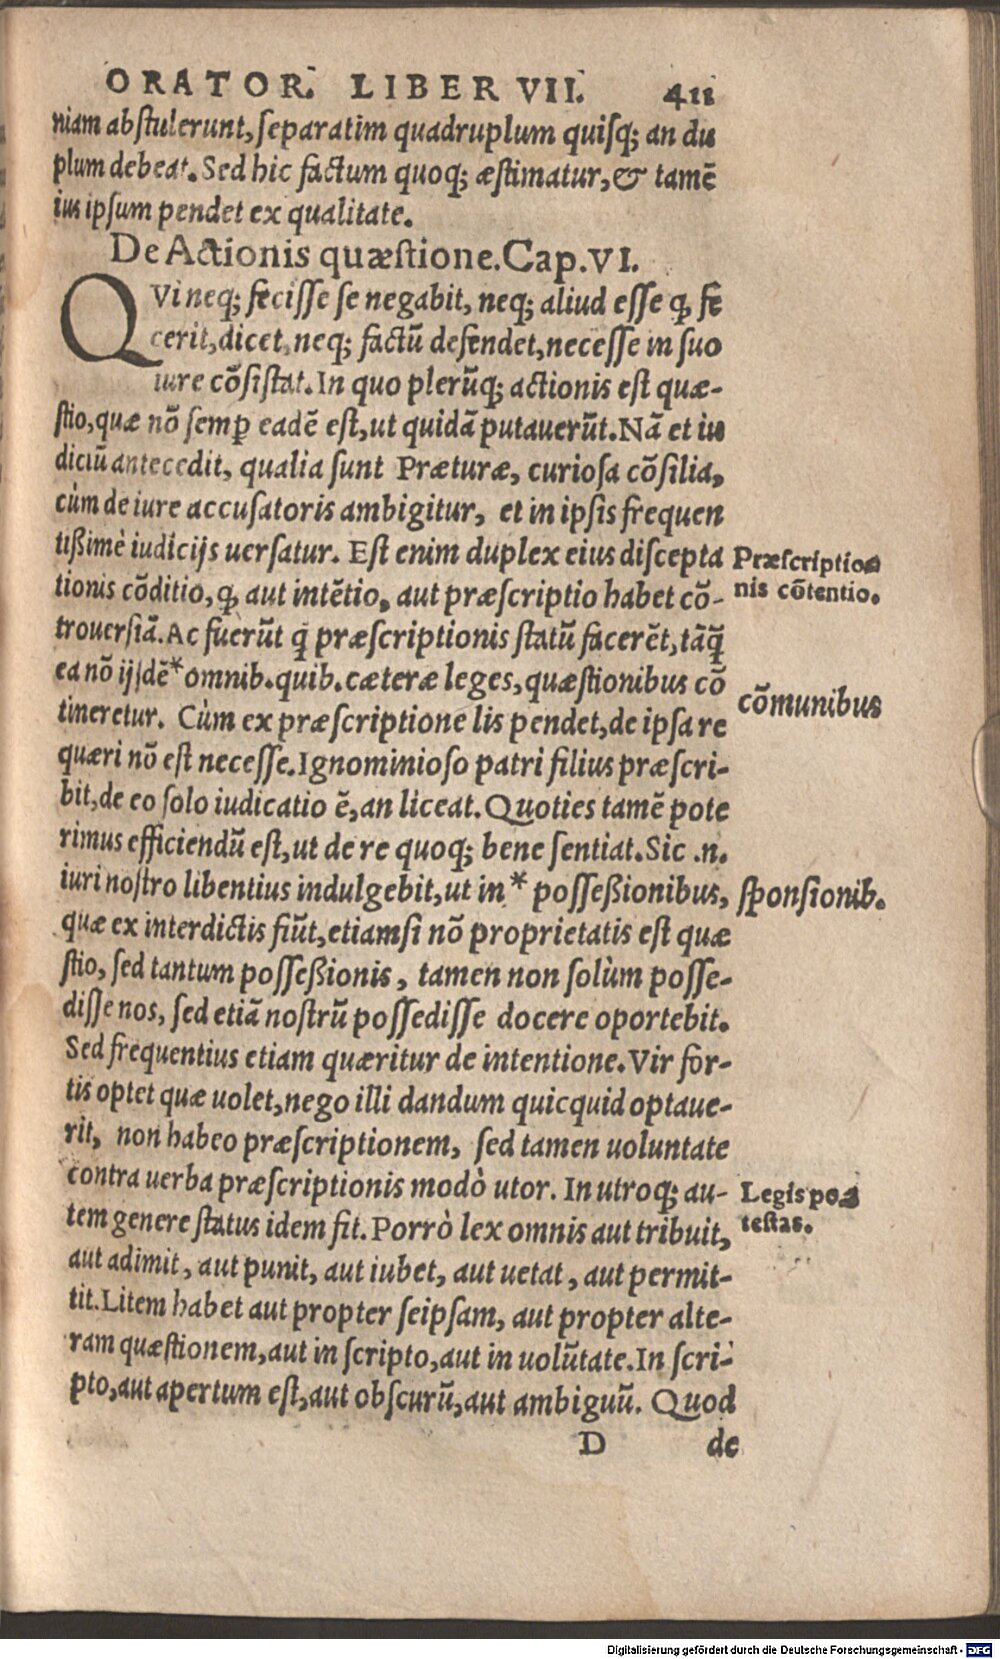 ORATOR. LIBER VII. 411
niam abstulerunt, separatim quadruplum quisq; an du
plum debeat. Sed hic factum quoq; æstimatur, & tamē
ius ipsum pendet ex qualitate.
De Actionis quæstione. Cap. VI.
QVi neq; fecisse se negabit, neq; aliud esse ꝙ fe
cerit, dicet, neq; factū defendet, necesse in suo
iure cōsistat. In quo plerūq; actionis est quæ-
stio, quæ nō semp eadē est, ut quidā putauerūt. Nā et iu
diciū antecedit, qualia sunt Præturæ, curiosa cōsilia,
cùm de iure accusatoris ambigitur, et in ipsis frequen
tißimè iudicijs uersatur. Est enim duplex eius discepta
Præscriptio-
tionis cōditio, ꝙ aut intētio, aut præscriptio habet cō-
nis cōtentio.
trouersiā. Ac fuerūt q̄ præscriptionis statū facerēt, tāq̄
ea nō ijsdē* omnib. quib. cæteræ leges, quæstionibus cō
cōmunibus
tineretur. Cùm ex præscriptione lis pendet, de ipsa re
quæri nō est necesse. Ignominioso patri filius præscri-
bit, de eo solo iudicatio ē, an liceat. Quoties tamē pote
rimus efficiendū est, ut de re quoq; bene sentiat. Sic .n.
iuri nostro libentius indulgebit, ut in * possеßionibus,
sponsionib.
quæ ex interdictis fiūt, etiamsi nō proprietatis est quæ
stio, sed tantum possеßionis, tamen non solùm posse-
disse nos, sed etiā nostrū possedisse docere oportebit.
Sed frequentius etiam quæritur de intentione. Vir for-
tis optet quæ uolet, nego illi dandum quicquid optaue-
rit, non habeo præscriptionem, sed tamen uoluntate
contra uerba præscriptionis modò utor. In utroq; au-
Legis po-
tem genere status idem fit. Porrò lex omnis aut tribuit,
testas.
aut adimit, aut punit, aut iubet, aut uetat, aut permit-
tit. Litem habet aut propter seipsam, aut propter alte-
ram quæstionem, aut in scripto, aut in uolūtate. In scri-
pto, aut apertum est, aut obscurū, aut ambiguū. Quod
D de
Digitalisierung gefördert durch die Deutsche Forschungsgemeinschaft - DFG